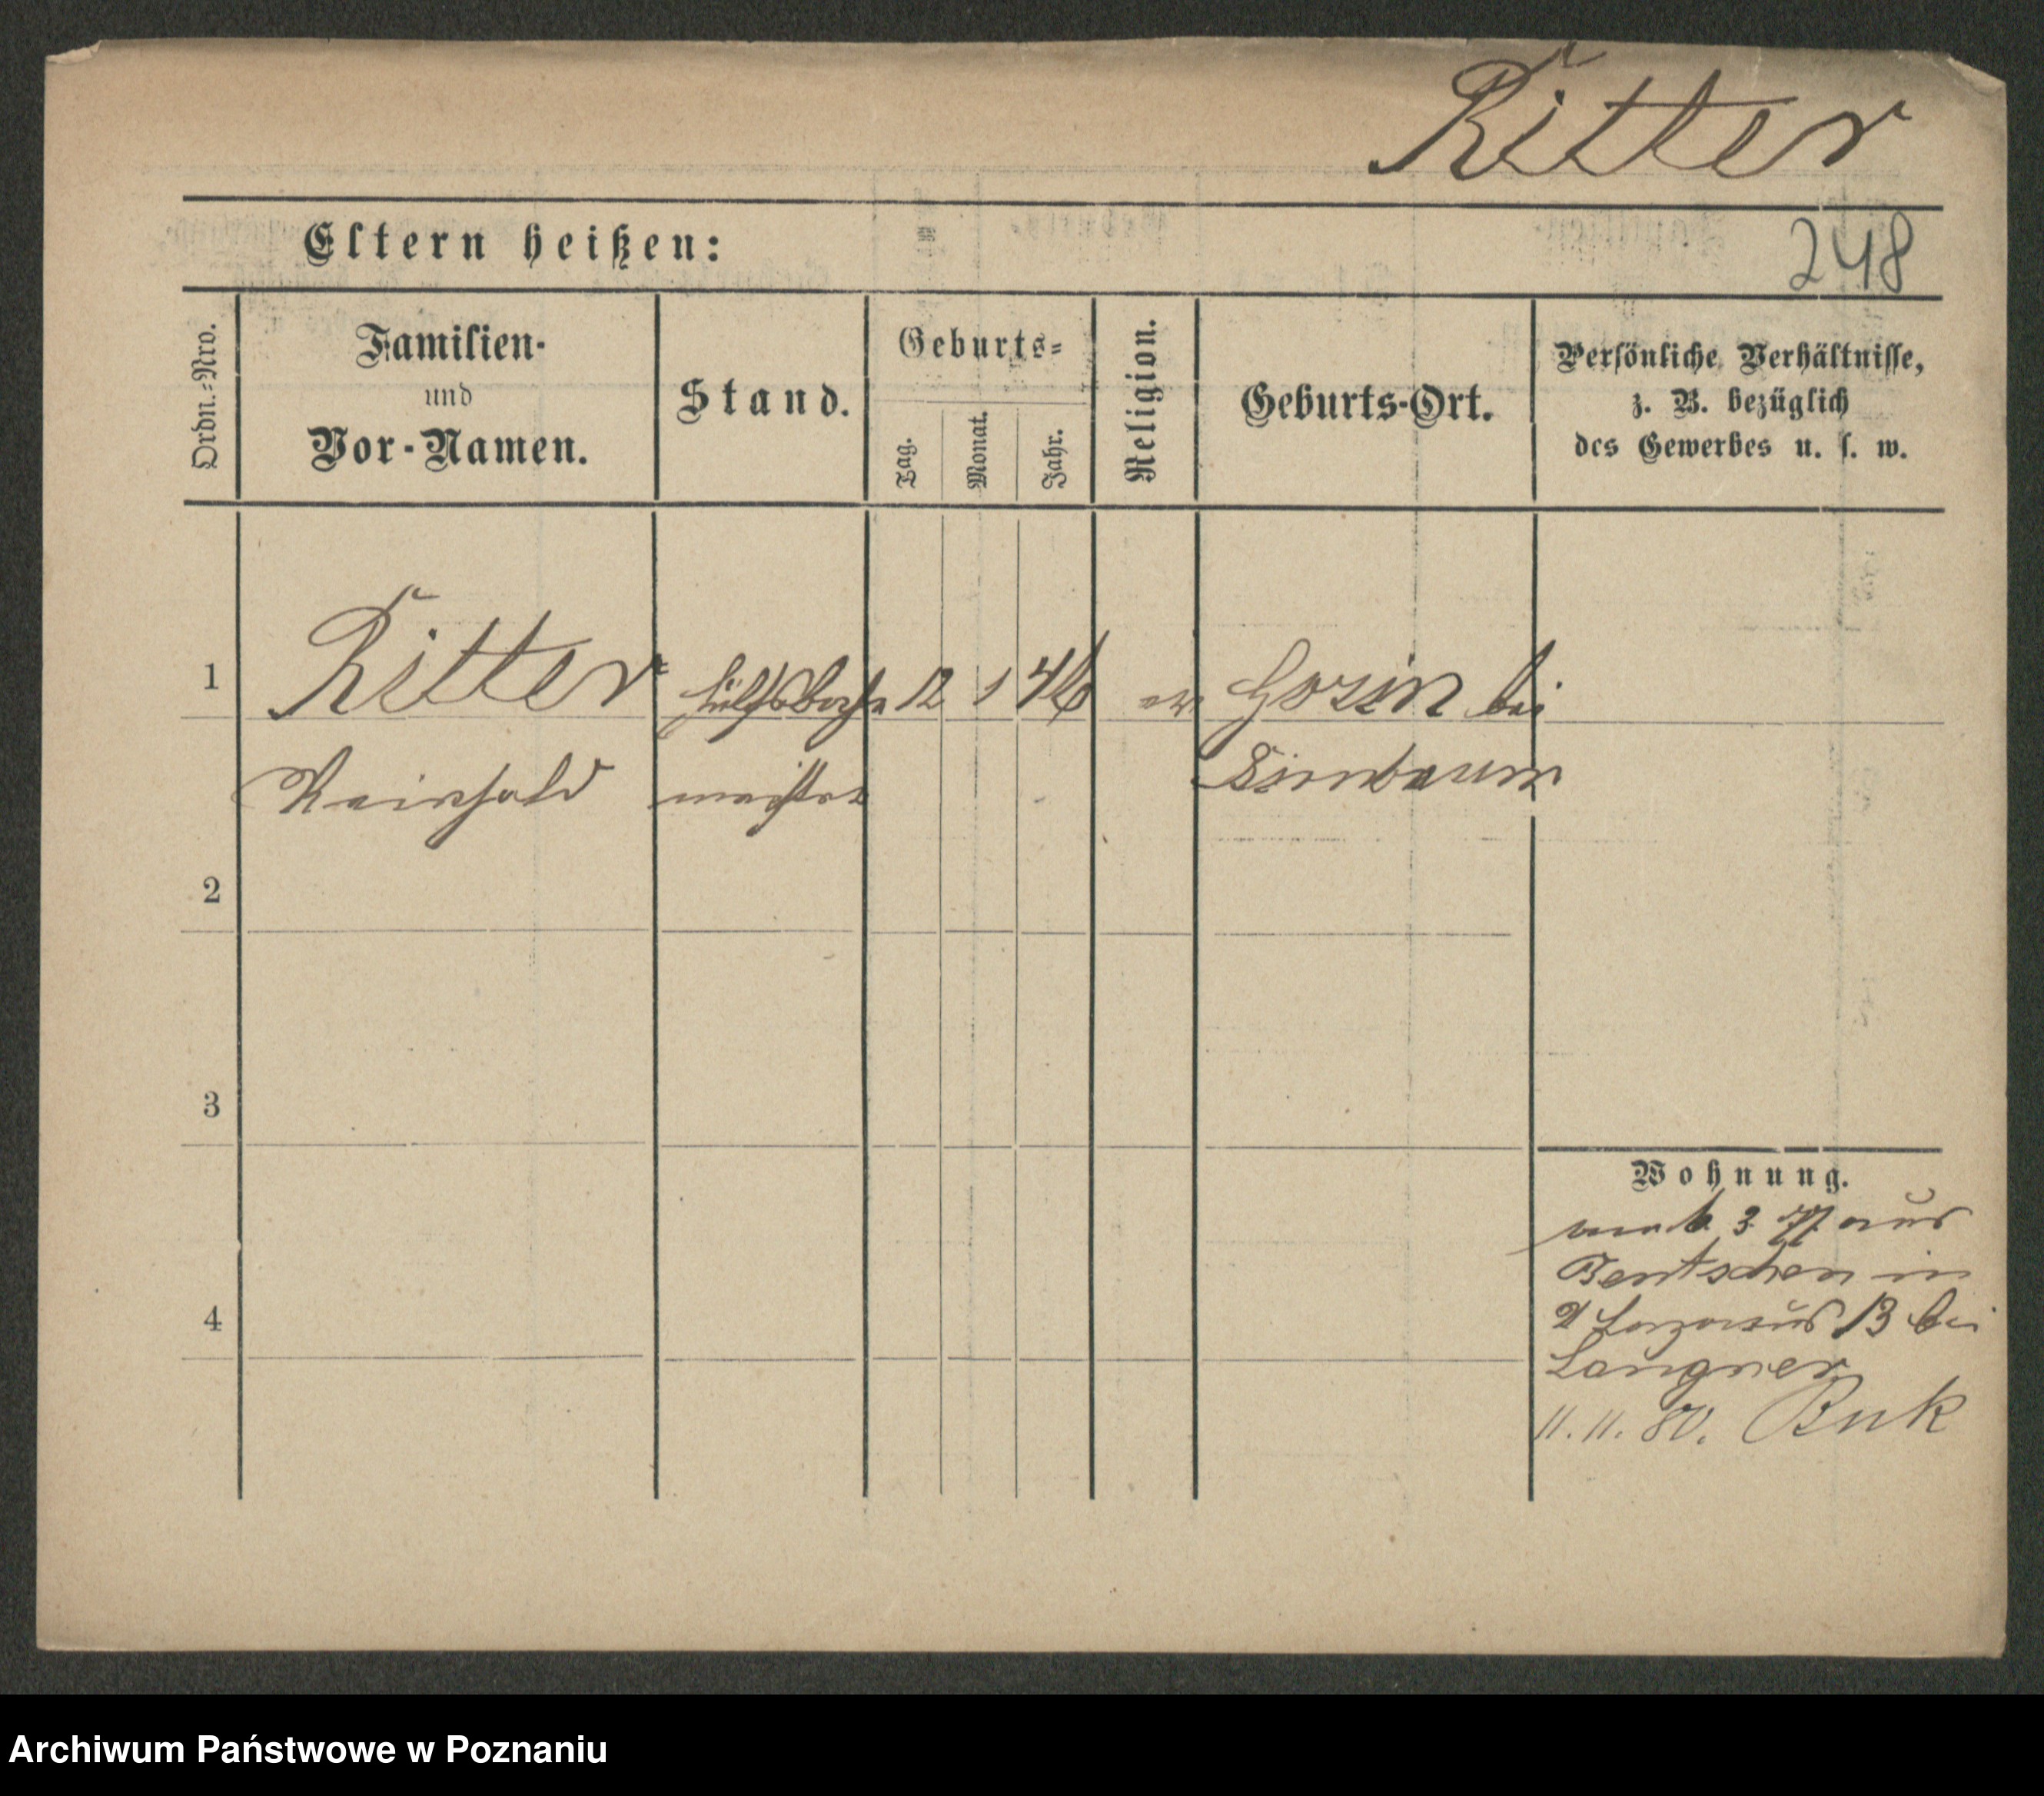 Ritter
Eltern heißen:
248
Ordn.-Nro.
Familien-
und
Vor-Namen.
Stand.
Geburts-
Tag.
Monat.
Jahr.
Religion.
Geburts-Ort.
Persönliche Verhältnisse,
z. B. bezüglich
des Gewerbes u. s. w.
1
Ritter
12
1
46
ev
Gorzin bei
Reinhold
meister
Birnbaum
2
3
Wohnung.
3 77 aus
Bentschen in
4
St Lazarus 13 bei
Langner
11. 11. 80. Buk
Archiwum Państwowe w Poznaniu